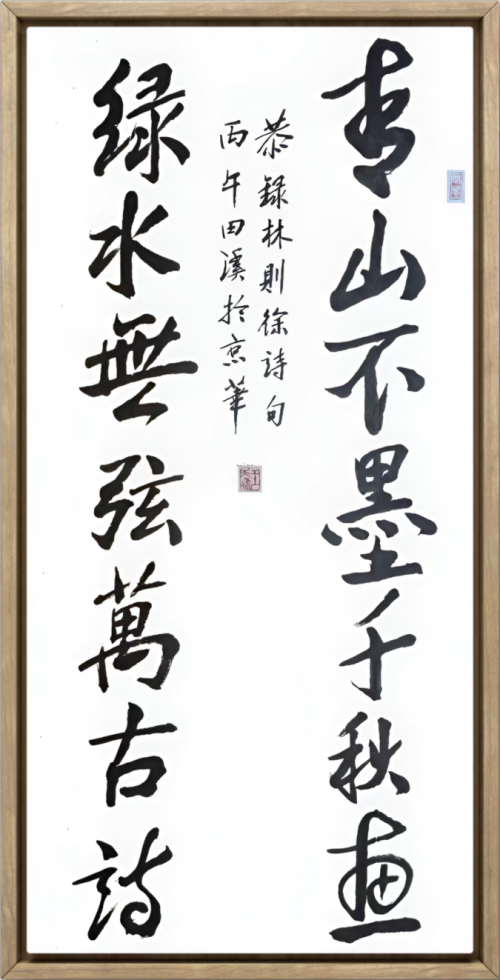 青山不墨千秋画
恭録林則徐詩句
丙午田溪於京華
緑水無弦萬古詩